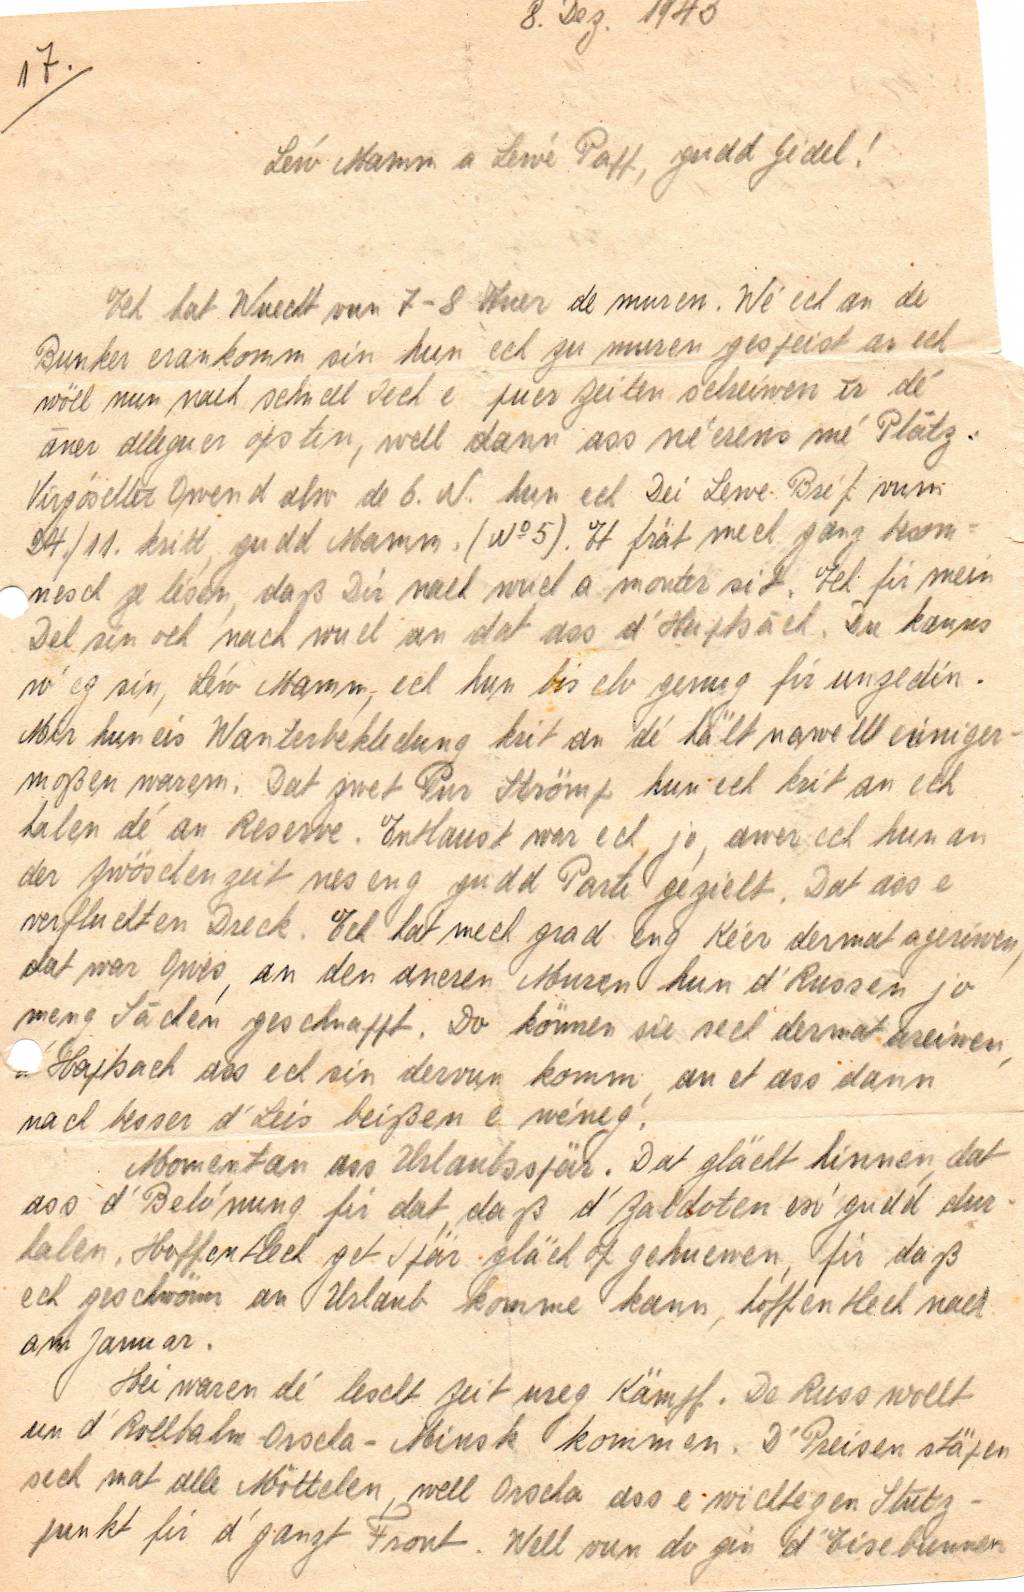 8. Dez. 1943
17.
Léw Mamm a Lewé Papp, gudd Jidel!
Ech hat Wuecht vun 7-8 Auer de muren. Wé ech an de
Bunker erankomm sin hun ech zu muren gespeist an ech
wöll nun nach schnell Iech e puer Zeilen schreiwen ir dé
äner alleguer opstin, well dann ass nérens mé Plätz.
Virgöschter Owend also de 6. hun ech Déi Lewe Bréf vum
24./11. kritt, gudd Mamm. (No 5). Et frät mech ganz beson=
nesch ze lésen, daß Dir nach wuel a monter sit. Ech fir mein
Del sin och nach wuel an dat ass d'Haptsäch. Du kanns
rö'eg sin, Léiw Mamm, ech hun bis elo genug fir unzedin.
Mir hun eis Wanterbekledung krit an dé hält nawell einiger-
moßen warem. Dat zwet Pur Strömp hun ech krit an ech
halen dé an Reserve. Entlaust war ech jo, awer ech hun an
der Zwöschenzeit nes eng gudd Partie gezielt. Dat ass e
verfluchten Dreck. Ech hat mech grad eng Kéer dermat ageriwen,
dat war Owes, an den aneren Muren hun d'Russen jo
meng Sächen geschnappt. Do können sie sech dermat areiwen,
d'Haptsach ass ech sin dervun komm, an et ass dann
nach besser d'Leis beißen e wéneg!
Momentan ass Urlaubsspär. Dat gläicht hinnen, dat
ass d'Belo'nung fir dat, daß d'Zaldoten eso' gudd dur-
halen. Hoffentlech get Spär gläch opgehuewen, fir daß
ech geschwönn an Urlaub komme kann, hoffentlech nach
am Januar.
Hei waren dé lescht Zeit ureg Kämpf. De Russ wollt
un d'Rollbahn Orscha-Minsk kommen. D'Preisen stäpen
sech mat alle Möttelen, well Orscha ass e wichtegen Stütz-
punkt fir d'ganzt Front. Well vun do gin d'Eisebunnen